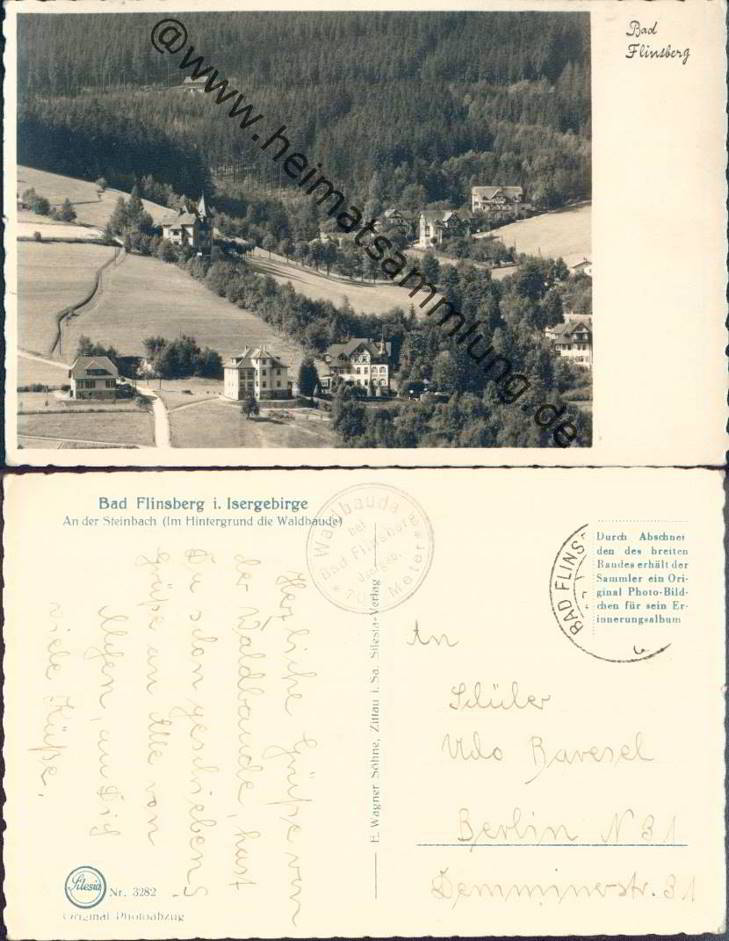 Bad
Flinsberg
@www.heimatsammlung.de
Bad Flinsberg i. Isergebirge
An der Steinbach (Im Hintergrund die Waldbaude)
Waldbaude
bei
Bad Flinsberg
Isergeb.
Meter
BAD FLINSB
Durch Abschnei
den des breiten
Randes erhält der
Sammler ein Ori-
ginal Photo-Bild-
chen für sein Er-
innerungsalbum
Herzliche Grüße von
der Waldbaude, hast
Du schon geschrieben?
Grüße an Alle von
Mizen, an Dich
viele Küße.
E. Wagner Söhne, Zittau i. Sa. Silesia-Verlag
An
Schüler
Udo Ravesel
Berlin N 31
Demminerstr. 31
Silesia
Nr. 3282
Original-Photoabzug